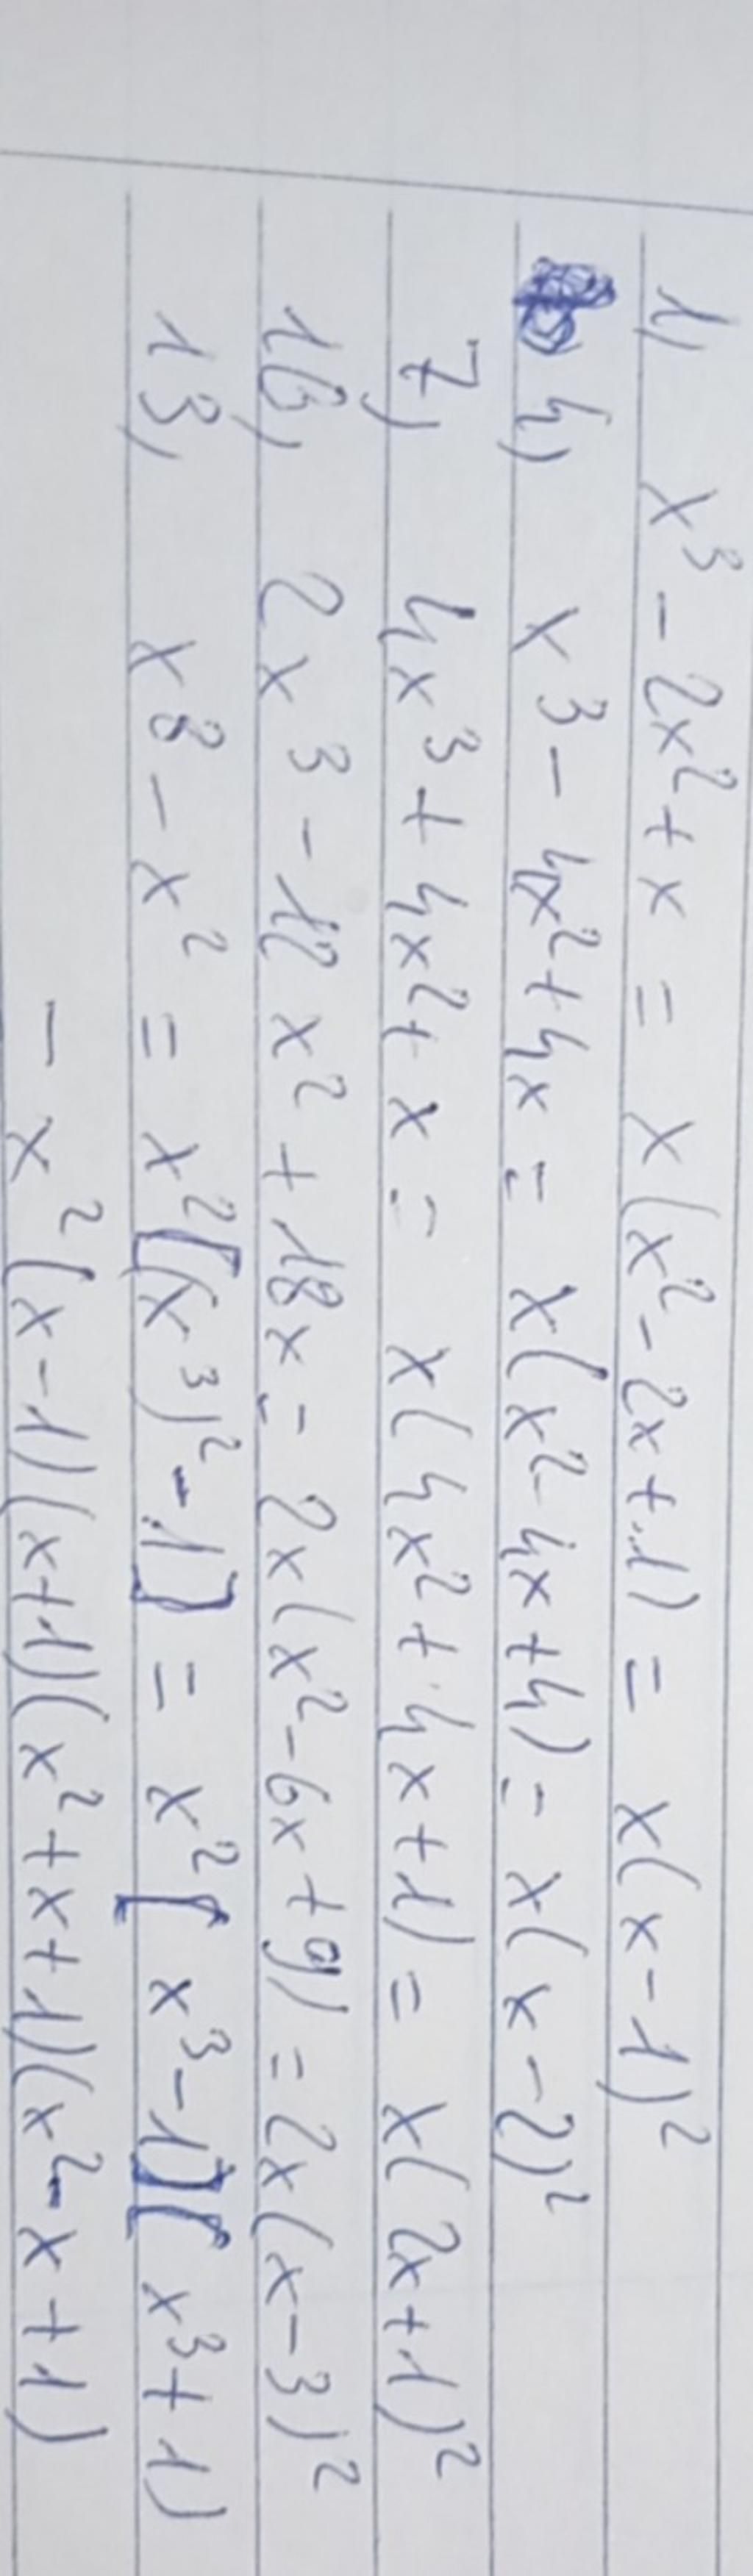 1, x³ - 2x² + x = x(x² - 2x + 1) = x(x - 1)²
4, x³ - 4x² + 4x = x(x² - 4x + 4) = x(x - 2)²
7, 4x³ + 4x² + x = x(4x² + 4x + 1) = x(2x + 1)²
10, 2x³ - 12x² + 18x = 2x(x² - 6x + 9) = 2x(x - 3)²
13, x⁸ - x² = x²[(x³)² - 1] = x²[x³ - 1][x³ + 1)
= x²(x - 1)(x + 1)(x² + x + 1)(x² - x + 1)